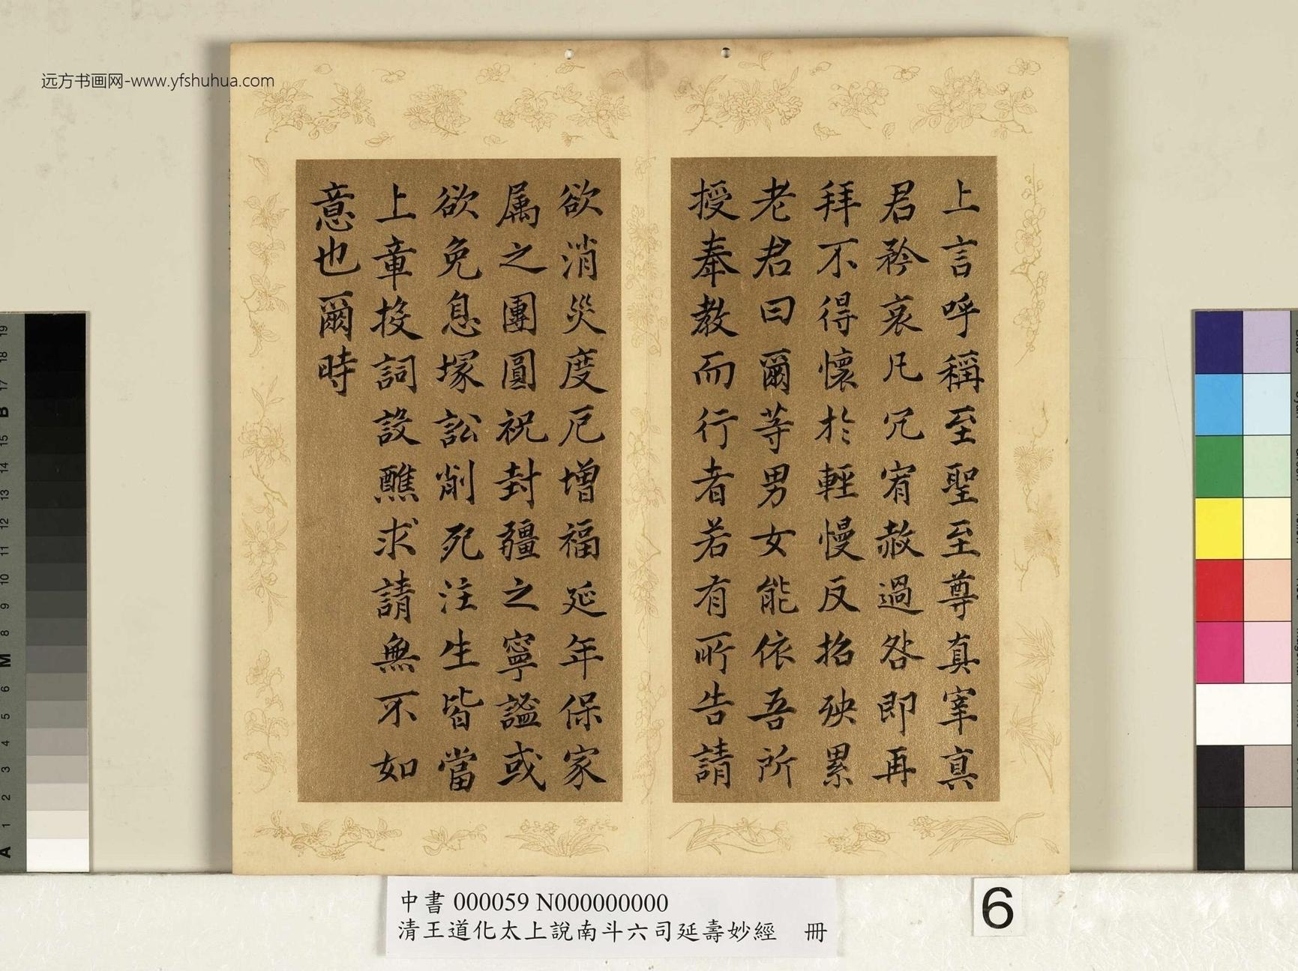 远方书画网-www.yfshuhua.com
上言呼稱至聖至尊真宰真
君矜哀凡冗宥赦過咎即再
拜不得懷於輕慢反招殃累
老君曰爾等男女能依吾所
授奉教而行者若有所告請
欲消災度厄增福延年保家
属之團圓祝封疆之寧謐或
欲免息塚訟削死注生皆當
上章投詞設醮求請無不如
意也爾時
中書 000059 N000000000
清王道化太上說南斗六司延壽妙經 冊
6